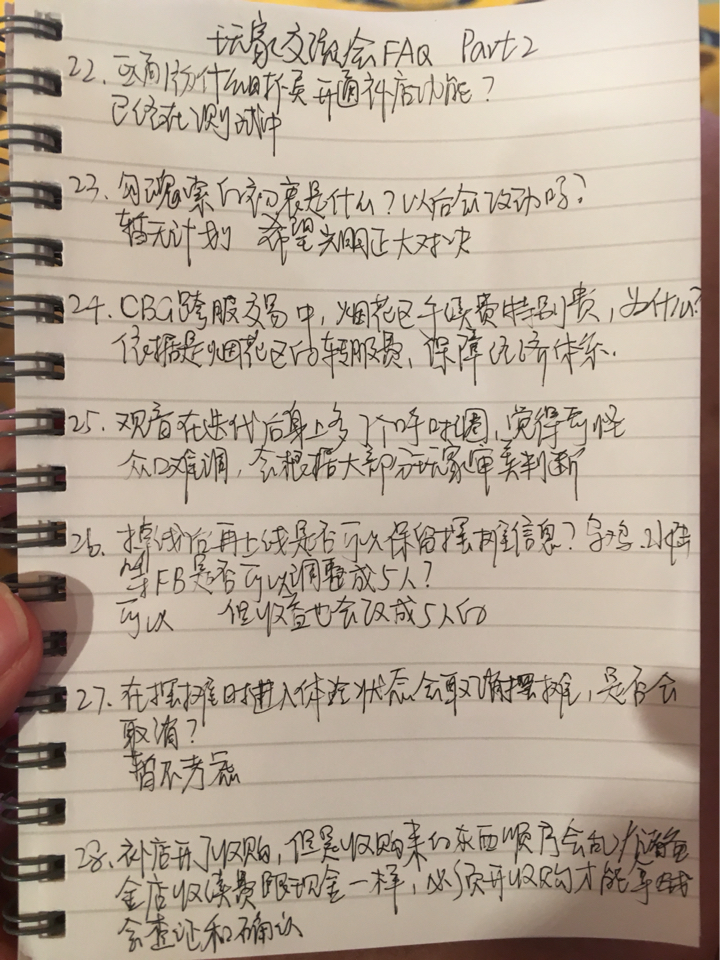 玩家交流会FAQ Part2
22. 什么时候 开通补店功能?
已经在测试中
23. 勾魂索的初衷是什么?以后会改动吗?
暂无计划 希望光明正大对决
24. CBG跨服交易中,烟花区手续费特别贵,为什么?
依据是烟花区的转服费,保障经济体系.
25. 观音在迭代后身上多了个呼啦圈,觉得奇怪
众口难调,会根据大部分玩家审美判断
26. 掉线后再上线是否可以保留摆摊信息?
等FB是否可以调整成5人?
可以 但收益也会改成5人的
27. 在摆摊时进入体验状态会取消摆摊,是否会
取消?
暂不考虑
28. 补店开了收购,但是收购来的东西顺序会乱
金店收续费跟现金一样,必须开收购才能
会查证和确认